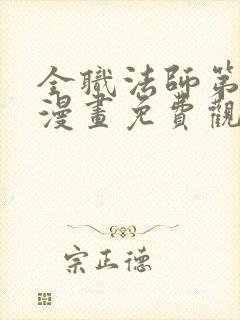 全職法師第
漫畫免費觀
宗正德